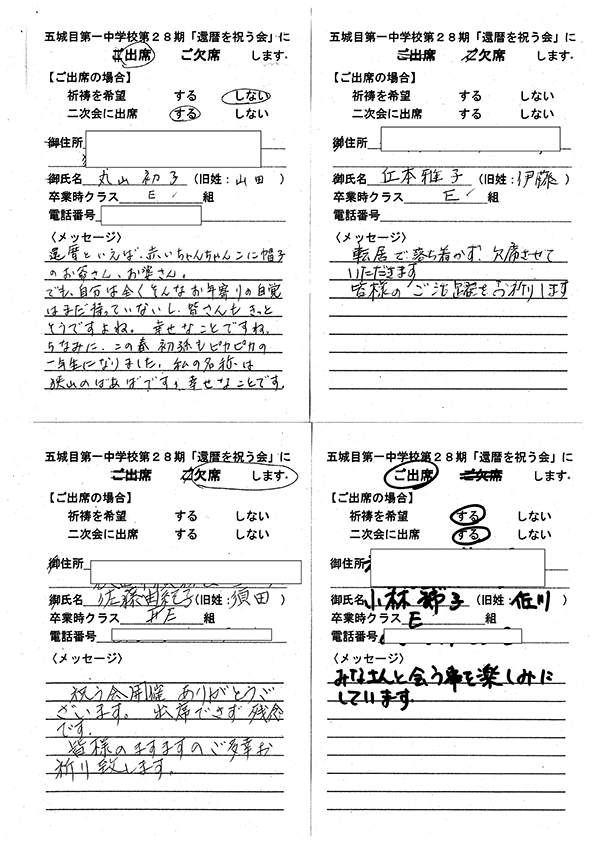 五城目第一中学校第２８期「還暦を祝う会」に
ご出席 ご欠席 します。
【ご出席の場合】
祈祷を希望 する しない
二次会に出席 する しない
御住所
御氏名 丸山 初子 (旧姓：山田 )
卒業時クラス E 組
電話番号
〈メッセージ〉
還暦といえば、赤いちゃんちゃんこに帽子
のお爺さん、お婆さん。
でも、自分は全くそんなお年寄りの自覚
はまだ持っていないし、皆さんもきっと
そうですよね。 幸せなことですね。
ちなみに、この春 初孫もピカピカの
一年生になりました。私の名称は
狭山のばぁばです。幸せなことです。
五城目第一中学校第２８期「還暦を祝う会」に
ご出席 ご欠席 します。
【ご出席の場合】
祈祷を希望 する しない
二次会に出席 する しない
御住所
御氏名 辻本雅子 (旧姓：伊藤 )
卒業時クラス E 組
電話番号
〈メッセージ〉
転居で落ち着かず、欠席させて
いただきます
皆様のご活躍をお祈りします
五城目第一中学校第２８期「還暦を祝う会」に
ご出席 ご欠席 します。
【ご出席の場合】
祈祷を希望 する しない
二次会に出席 する しない
御住所
御氏名 佐藤由紀子 (旧姓：須田 )
卒業時クラス E 組
電話番号
〈メッセージ〉
祝う会開催 ありがとうご
ざいます。 出席できず 残念
です。
皆様のますますのご多幸お
祈り致します。
五城目第一中学校第２８期「還暦を祝う会」に
ご出席 ご欠席 します。
【ご出席の場合】
祈祷を希望 する しない
二次会に出席 する しない
御住所
御氏名 小林 子 (旧姓：佐川 )
卒業時クラス E 組
電話番号
〈メッセージ〉
みなさんと会う事を楽しみに
しています